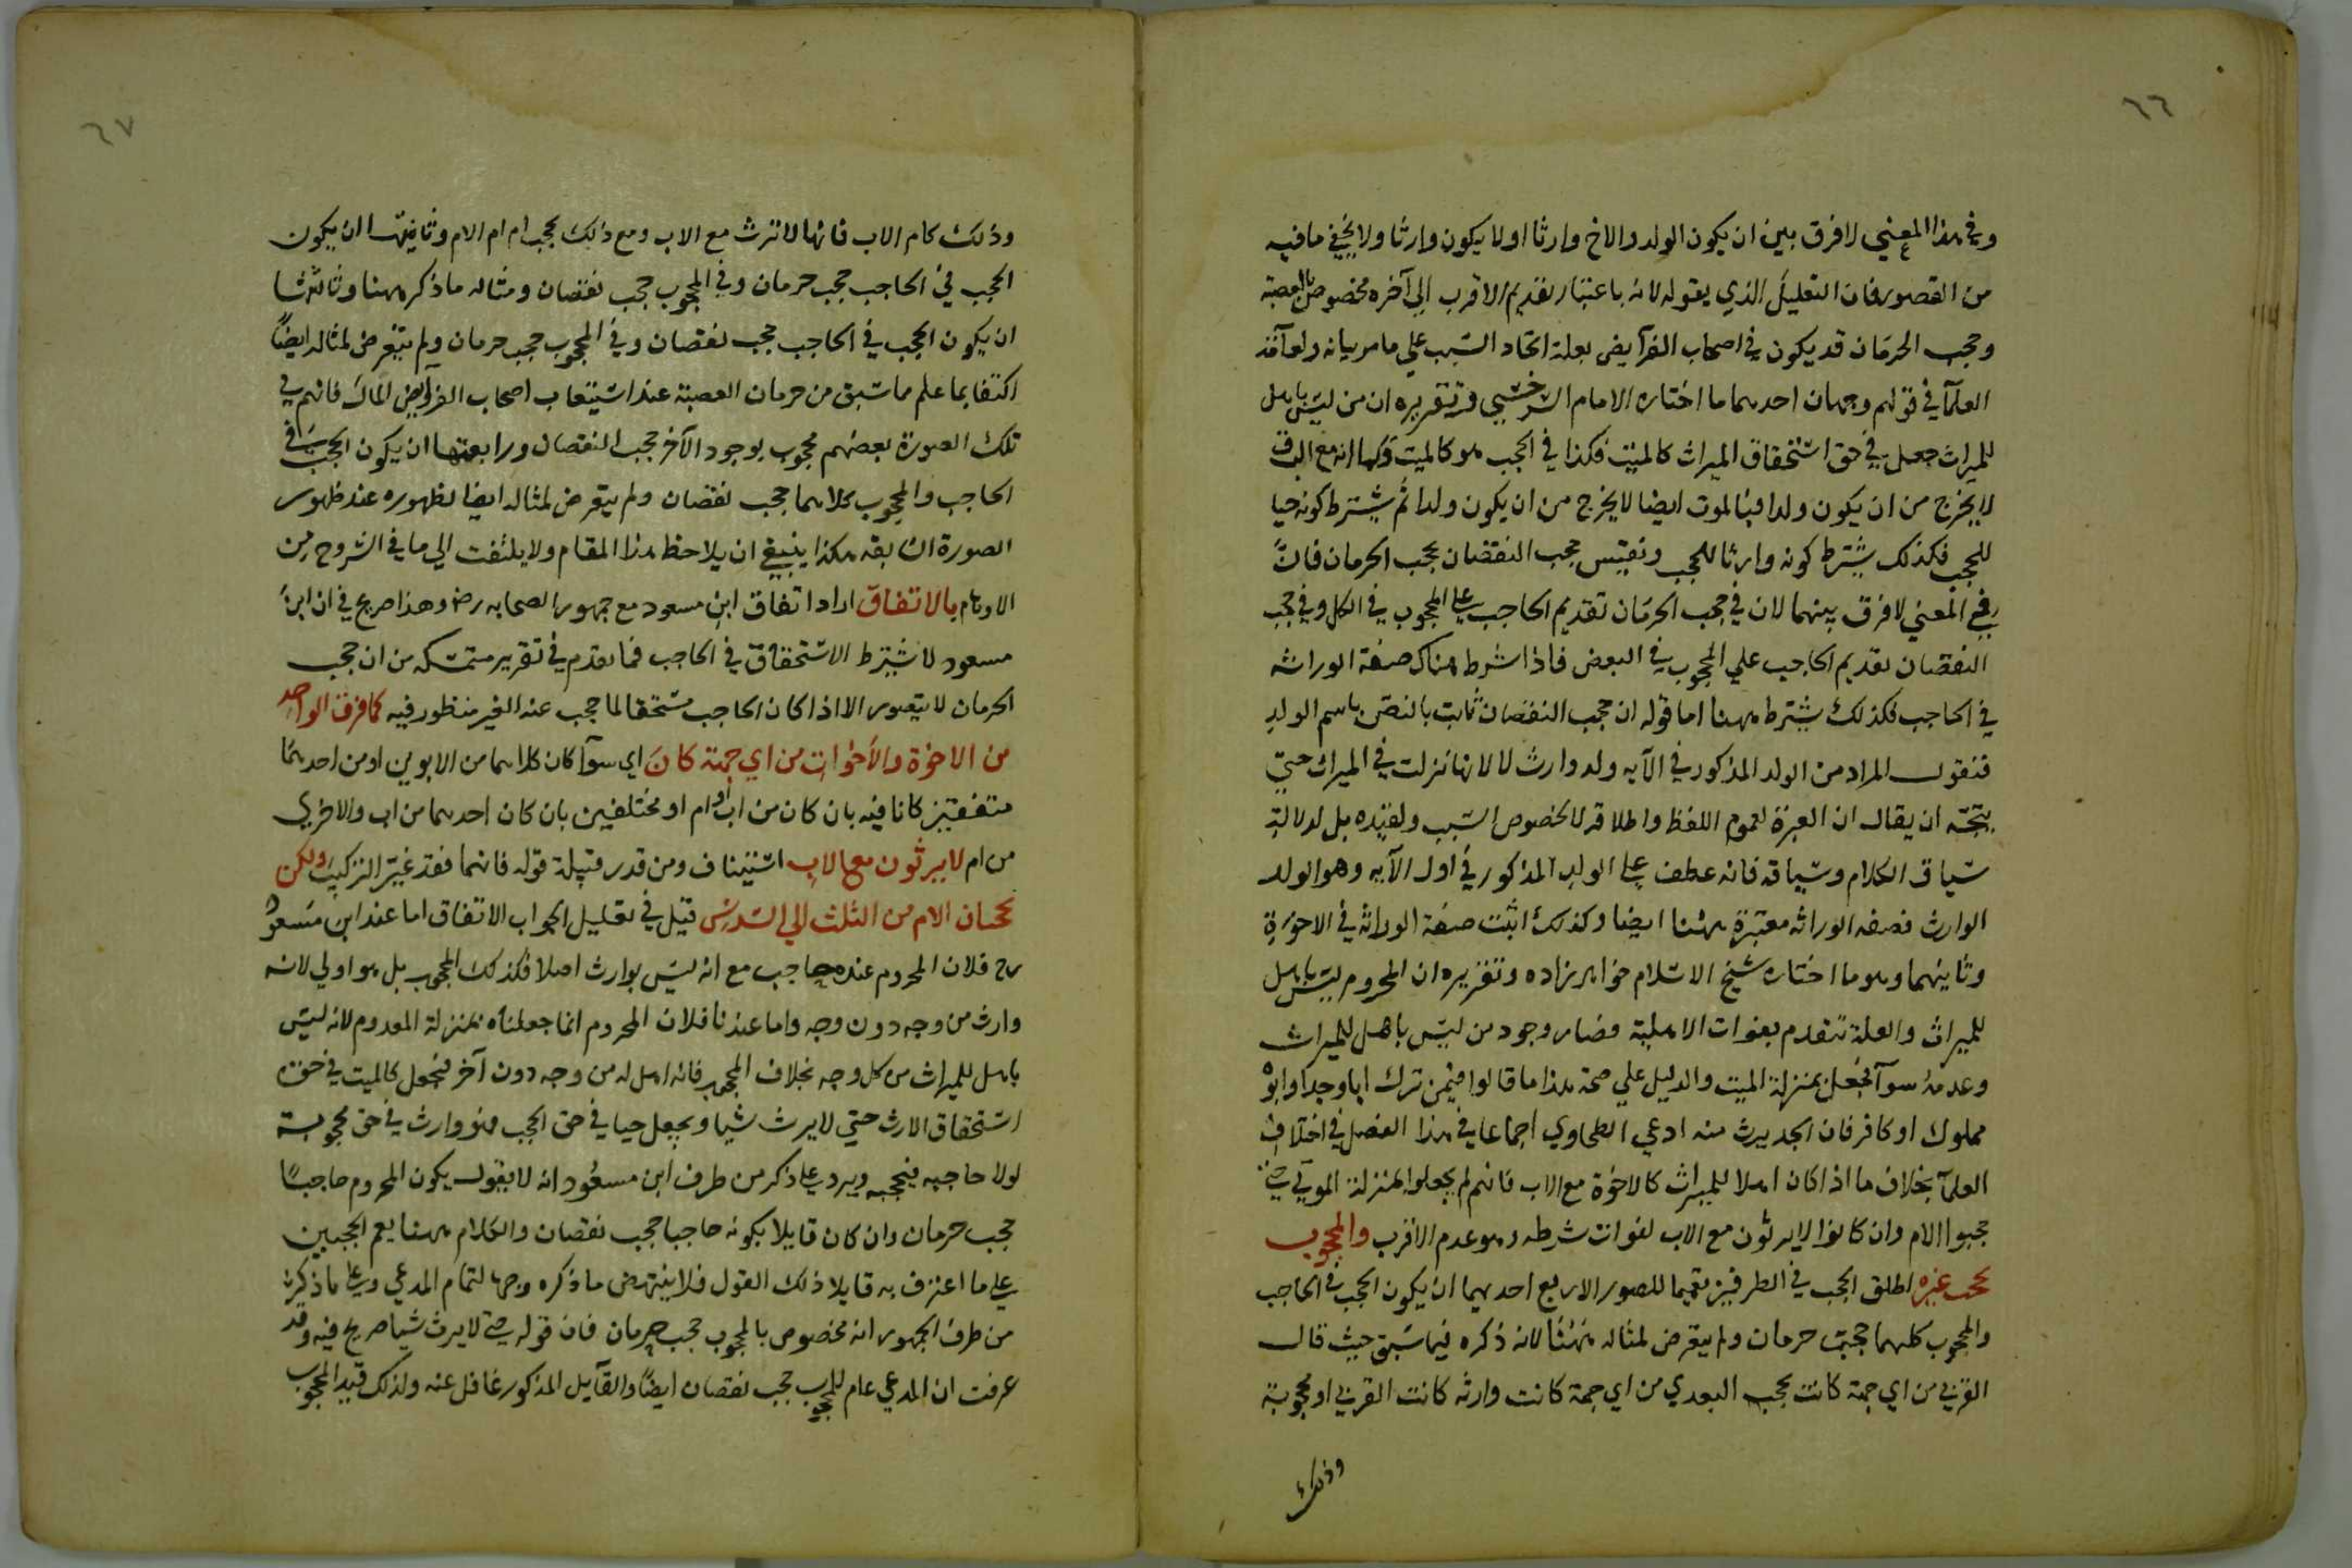 ٦٦
وفي هذا المعني لا فرق بين ان يكون الولد والاخ وارثا او لا يكون وارثا ولا يخفي ما فيه
من القصور فان التعليل الذي يقوله لانه باعتبار تقديم الاقرب الي آخره مخصوص بالعصبة
وحجب الحرمان قد يكون في اصحاب الفرآيض بعلة اتحاد السبب علي ما مر بيانه ولعآمة
العلمآ في قولهم وجهان احدهما ما اختاره الامام السرخسي وتقريره ان من ليس باهل
للميراث جعل في حق استحقاق الميراث كالميت فكذا في الحجب هو كالميت وكما انه مع الرق
لا يخرج من ان يكون ولدا فبالموت ايضا لا يخرج من ان يكون ولدا ثم يشترط كونه حيا
للحجب فكذلك يشترط كونه وارثا للحجب ونقيس حجب النقصان بحجب الحرمان فانّ
في المعني لا فرق بينهما لان في حجب الحرمان تقديم الحاجب علي المحجوب في الكل وفي حجب
النقصان تقديم الحاجب علي المحجوب في البعض فاذا شرط هناك صفة الوراثه
في الحاجب فكذلك يشترط ههنا اما قوله ان حجب النقصان ثابت بالنص باسم الولد
فنقول المراد من الولد المذكور في الآيه ولد وارث لا لانها نزلت في الميراث حتي
يتجه ان يقال ان العبرة لعموم اللفظ واطلاقه لا لخصوص السبب وتقيده بل لدلالة
سياق الكلام وسياقه فانه عطف علي الولد المذكور في اول الآيه وهو الولد
الوارث فصفه الوراثه معتبرة ههنا ايضا وكذلك اثبت صفة الوراثه في الاخوة
وثانيهما وهو ما اختاره شيخ الاسلام خواهر زاده وتقريره ان المحروم ليس باهل
للميراث والعلة تنعدم بفوات الاهلية فصار وجود من ليس باهل للميراث
وعدمه سوآ فجعل بمنزلة الميت والدليل علي صحة هذا ما قالوا فيمن ترك ابا وجدا وابوه
مملوك او كافر فان الجد يرث منه ادعي الطحاوي اجماعا في هذا الفصل في اختلاف
العلمآ بخلاف ما اذا كان اهلا للميراث كالاخوة مع الاب فانهم لم يجعلوا بمنزلة الموتي حتي
حجبوا الام وان كانوا لا يرثون مع الاب لفوات شرطه وهو عدم الاقرب والمحجوب
يحجب غيره اطلق الحجب في الطرفين تعميما للصور الاربع احديهما ان يكون الحجب في الحاجب
والمحجوب كلهما حجب حرمان ولم يتعرض لمثاله ههنا لانه ذكره فيما سبق حيث قال
القربي من اي جهة كانت تحجب البعدي من اي جهة كانت وارثه كانت القربي او محجوبة
وذلك
٦٧
وذلك كام الاب فانها لا ترث مع الاب ومع ذلك تحجب ام ام الام وثانيتها ان يكون
الحجب في الحاجب حجب حرمان وفي المحجوب حجب نقصان ومثاله ما ذكر ههنا وثالثتها
ان يكون الحجب في الحاجب حجب نقصان وفي المحجوب حجب حرمان ولم يتعرض لمثاله ايضاً
اكتفا بما علم مما سبق من حرمان العصبة عند استيعاب اصحاب الفرايض المال فانهم في
تلك الصورة بعضهم محجوب بوجود الآخر حجب النقصان ورابعتها ان يكون الحجب في
الحاجب والمحجوب كلاهما حجب نقصان ولم يتعرض لمثاله ايضا لظهوره عند ظهور
الصورة السابقه هكذا ينبغي ان يلاحظ هذا المقام ولا يلتفت الي ما في الشروح من
الاوهام بالاتفاق اراد اتفاق ابن مسعود مع جمهور الصحابه رض وهذا صريح في ان ابن
مسعود لا يشترط الاستحقاق في الحاجب فما تقدم في تقرير متمسكه من ان حجب
الحرمان لا يتصور الا اذا كان الحاجب مستحقا لما حجب عنه الغير منظور فيه كما فوق الواحد
من الاخوة والاخوات من اي جهة كان اي سوآ كان كلاهما من الابوين او من احدهما
متفقين كانا فيه بان كان من اب او ام او مختلفين بان كان احدهما من اب والاخري
من ام لا يرثون مع الاب استيناف ومن قدر قبيلة قوله فانهما فقد غير التركيب ولكن
يحجبان الام من الثلث الي السدس قيل في تعليل الجواب الاتفاق اما عند ابن مسعود
رض فلان المحروم عنده حاجب مع انه ليس بوارث اصلا فكذلك المحجوب بل هو اولي لانه
وارث من وجه دون وجه واما عندنا فلان المحروم انما جعلناه بمنزلة المعدوم لانه ليس
باهل للميراث من كل وجه بخلاف المحجوب فانه اهل له من وجه دون آخر فيجعل كالميت في حق
استحقاق الارث حتي لا يرث شيا ويجعل حيا في حق الحجب فهو وارث في حق محجوبه
لولا حاجبه فيحجبه ويرد علي ما ذكر من طرف ابن مسعود انه لا يقول يكون المحروم حاجباً
حجب حرمان وان كان قايلا بكونه حاجبا حجب نقصان والكلام ههنا يعم الحجبين
علي ما اعترف به قايلا ذلك القول فلا ينتهض ما ذكره وجها لتمام المدعي وعلي ما ذكره
من طرف الجمهور انه مخصوص بالمحجوب حجب حرمان فان قوله حتي لا يرث شيا صريح فيه وقد
عرفت ان المدعي عام للمحجوب حجب نقصان ايضاً والقآيل المذكور غافل عنه ولذلك قيد المحجوب